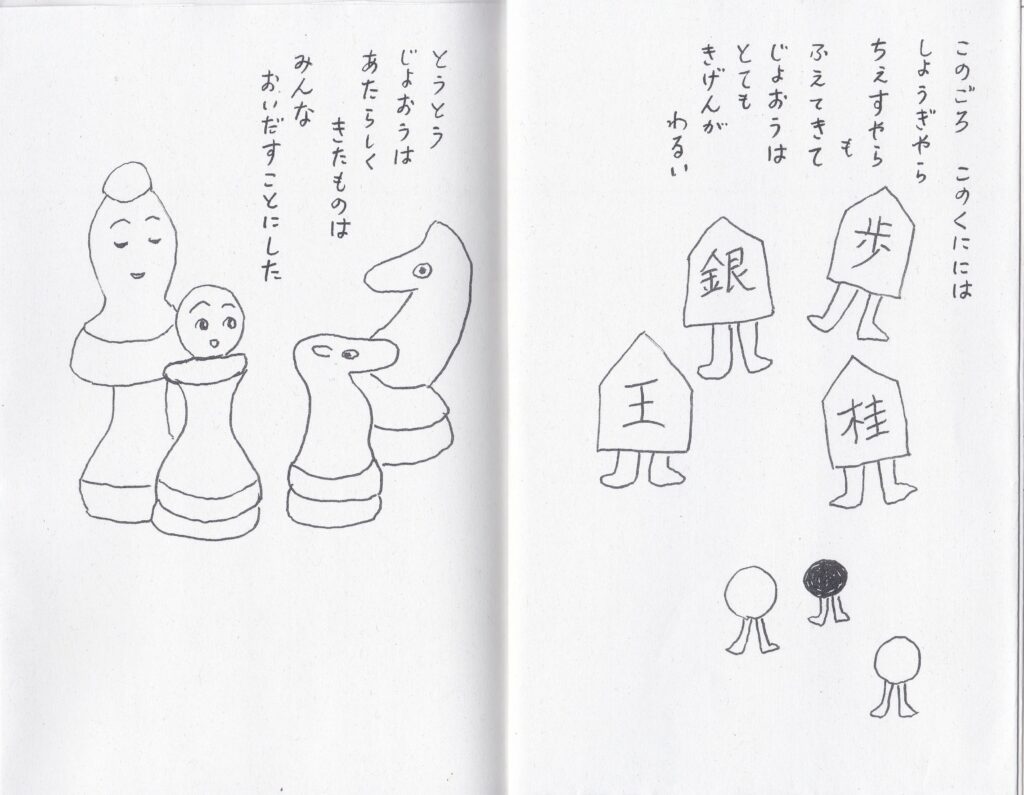 このごろ　このくにには
しょうぎやら
ちぇすやら
も
ふえてきて
じょおうは
とても
きげんが
わるい
歩
銀
王
桂
とうとう
じょおうは
あたらしく
きたものは
みんな
おいだすことにした